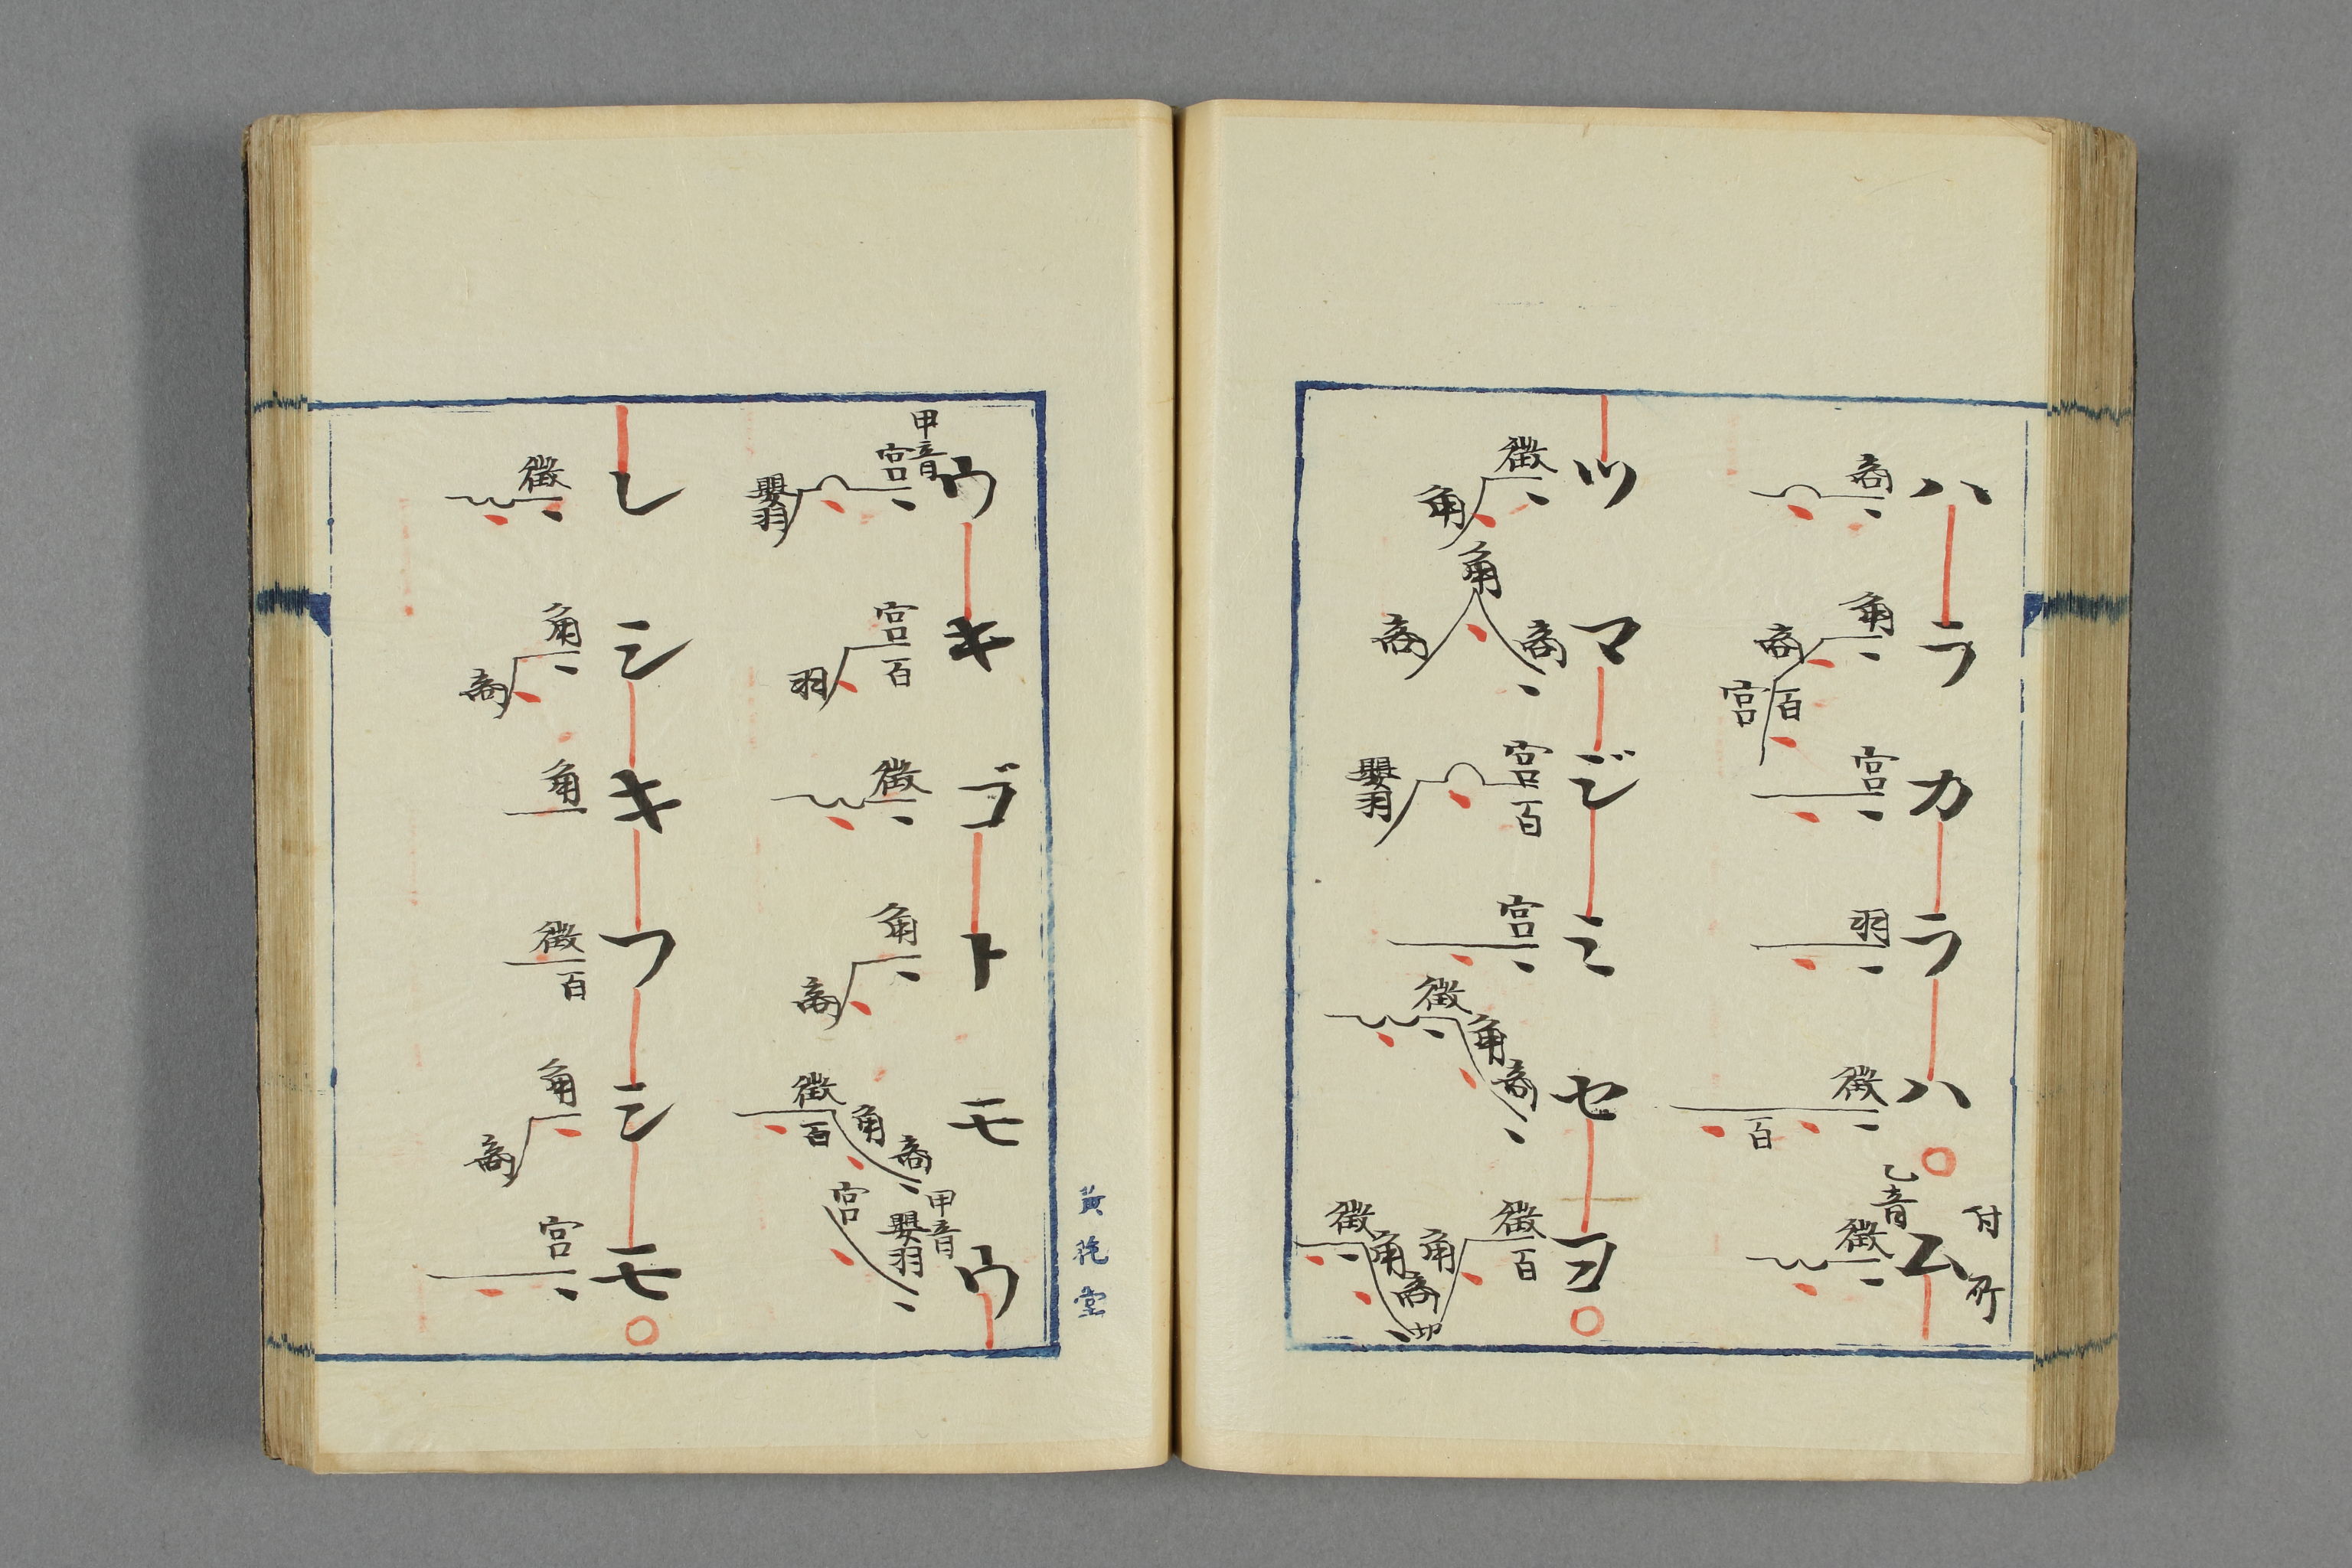 付所
ハラカラハ○ム
商
角商
百宮
宮
羽
徴百
乙音
徴
ツマジミセヨ○
徴角
商角商
宮百嬰羽
宮
商角徴
徴百角
商角徴
ウキゴトモウ
甲音
宮嬰羽
宮百羽
徴
角商
商角徴百
甲音
嬰羽宮
レシキフシモ○
徴
角商
角
徴百
角商
宮